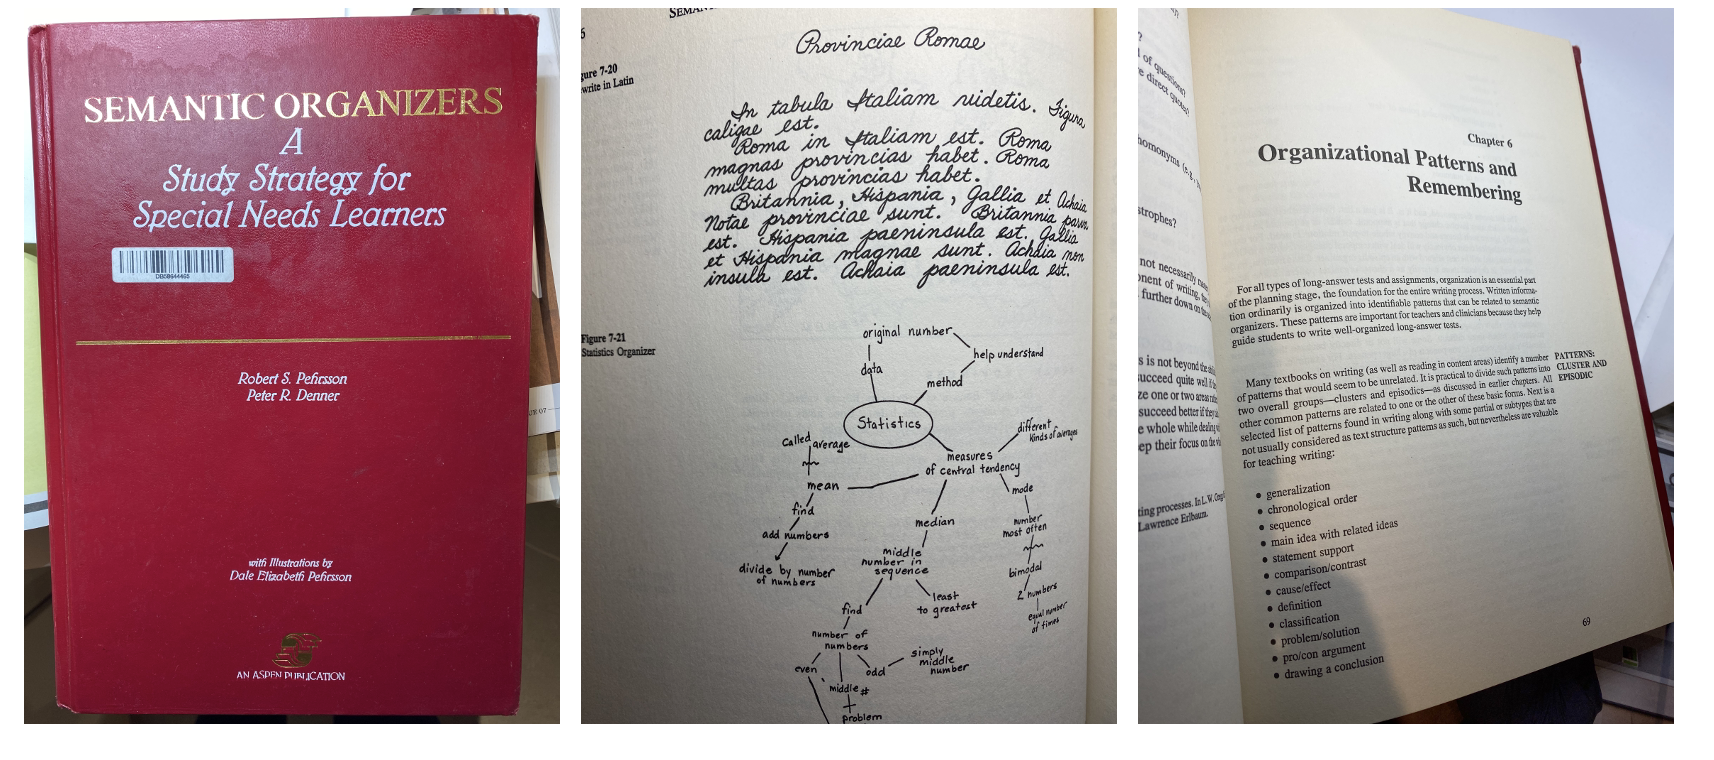 SEMANTIC ORGANIZERS
A
Study Strategy for
Special Needs Learners
DB58644465
Robert S. Pehrsson
Peter R. Denner
with Illustrations by
Dale Elizabeth Pehrsson
AN ASPEN PUBLICATION
Provinciae Romae
gure 7-20
write in Latin
In tabula Italiam videtis. Figura
caligae est.
Roma in Italiam est. Roma
magnas provincias habet. Roma
multas provincias habet.
Britannia, Hispania, Gallia et Achaia
Notae provinciae sunt. Britannia parva
est. Hispania paeninsula est. Gallia
et Hispania magnae sunt. Achaia non
insula est. Achaia paeninsula est.
Figure 7-21
Statistics Organizer
original number
help understand
data
method
Statistics
different
kinds of averages
called average
measures
of central tendency
mean
mode
find
add numbers
divide by number
of numbers
median
number
most often
middle
number in
sequence
bimodal
2 numbers
equal number
of times
least
to greatest
find
number of
numbers
even
odd
simply
middle
number
middle #
problem
?
of questions?
e direct quotes?
homonyms (e.g.,
strophes?
not necessarily
nent of writing,
further down on the
s is not beyond the
succeed quite well if
ze one or two areas
succeed better if they
e whole while dealing
ep their focus on the
ting processes. In L. W.
Lawrence Erlbaum.
Chapter 6
Organizational Patterns and
Remembering
For all types of long-answer tests and assignments, organization is an essential part
of the planning stage, the foundation for the entire writing process. Written informa-
tion ordinarily is organized into identifiable patterns that can be related to semantic
organizers. These patterns are important for teachers and clinicians because they help
guide students to write well-organized long-answer tests.
PATTERNS:
CLUSTER AND
EPISODIC
Many textbooks on writing (as well as reading in content areas) identify a number
of patterns that would seem to be unrelated. It is practical to divide such patterns into
two overall groups—clusters and episodics—as discussed in earlier chapters. All
other common patterns are related to one or the other of these basic forms. Next is a
selected list of patterns found in writing along with some partial or subtypes that are
not usually considered as text structure patterns as such, but nevertheless are valuable
for teaching writing:
• generalization
• chronological order
• sequence
• main idea with related ideas
• statement support
• comparison/contrast
• cause/effect
• definition
• classification
• problem/solution
• pro/con argument
• drawing a conclusion
69